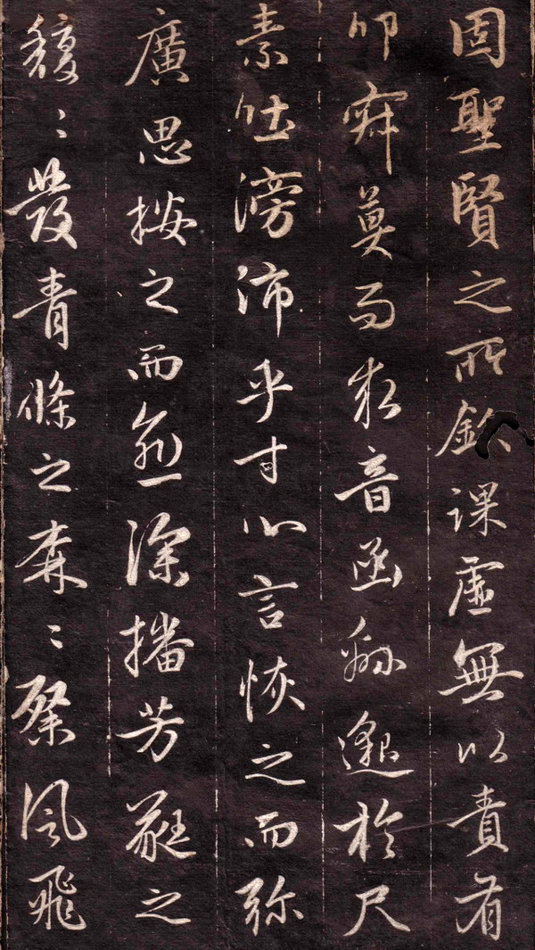 固聖賢之所欽課虛無以責有
叩寂莫而求音函緜邈於尺
素吐滂沛乎寸心言恢之而弥
廣思按之而愈深播芳蕤之
馥〻發青條之森〻粲風飛